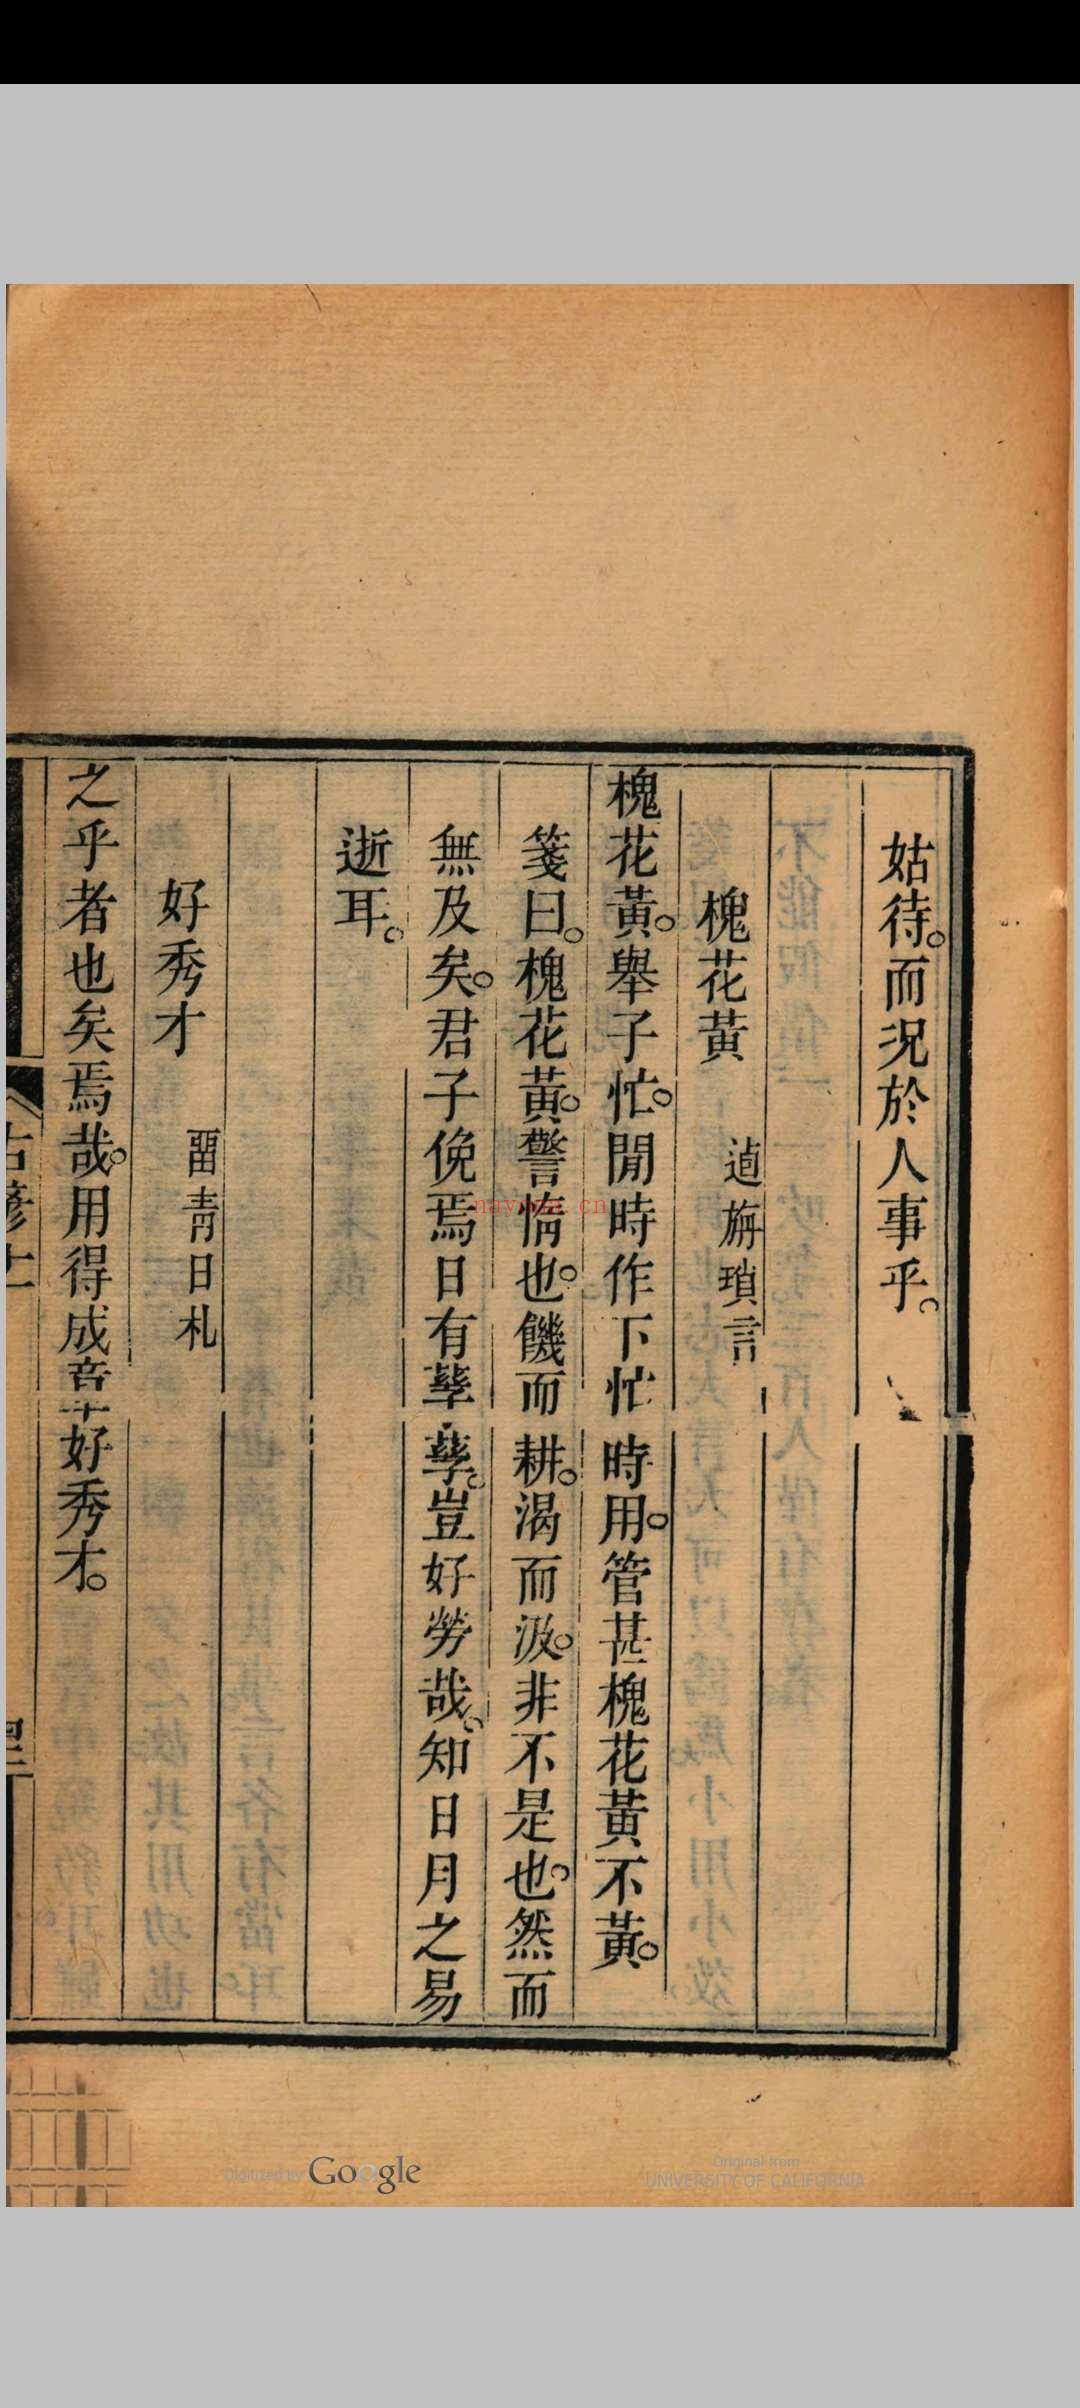 姑待。而況於人事乎。
槐花黃 逌旃瑣言
槐花黃。舉子忙。閒時作下忙時用。管甚槐花黃不黃。
箋曰。槐花黃。警惰也。饑而耕。渴而汲。非不是也。然而
無及矣。君子俛焉日有孳孳。豈好勞哉。知日月之易
逝耳。
好秀才 畱青日札
之乎者也矣焉哉。用得成章好秀才。
古諺上
nayona.cn
Digitized by Google
Original from
UNIVERSITY OF CALIFORNIA